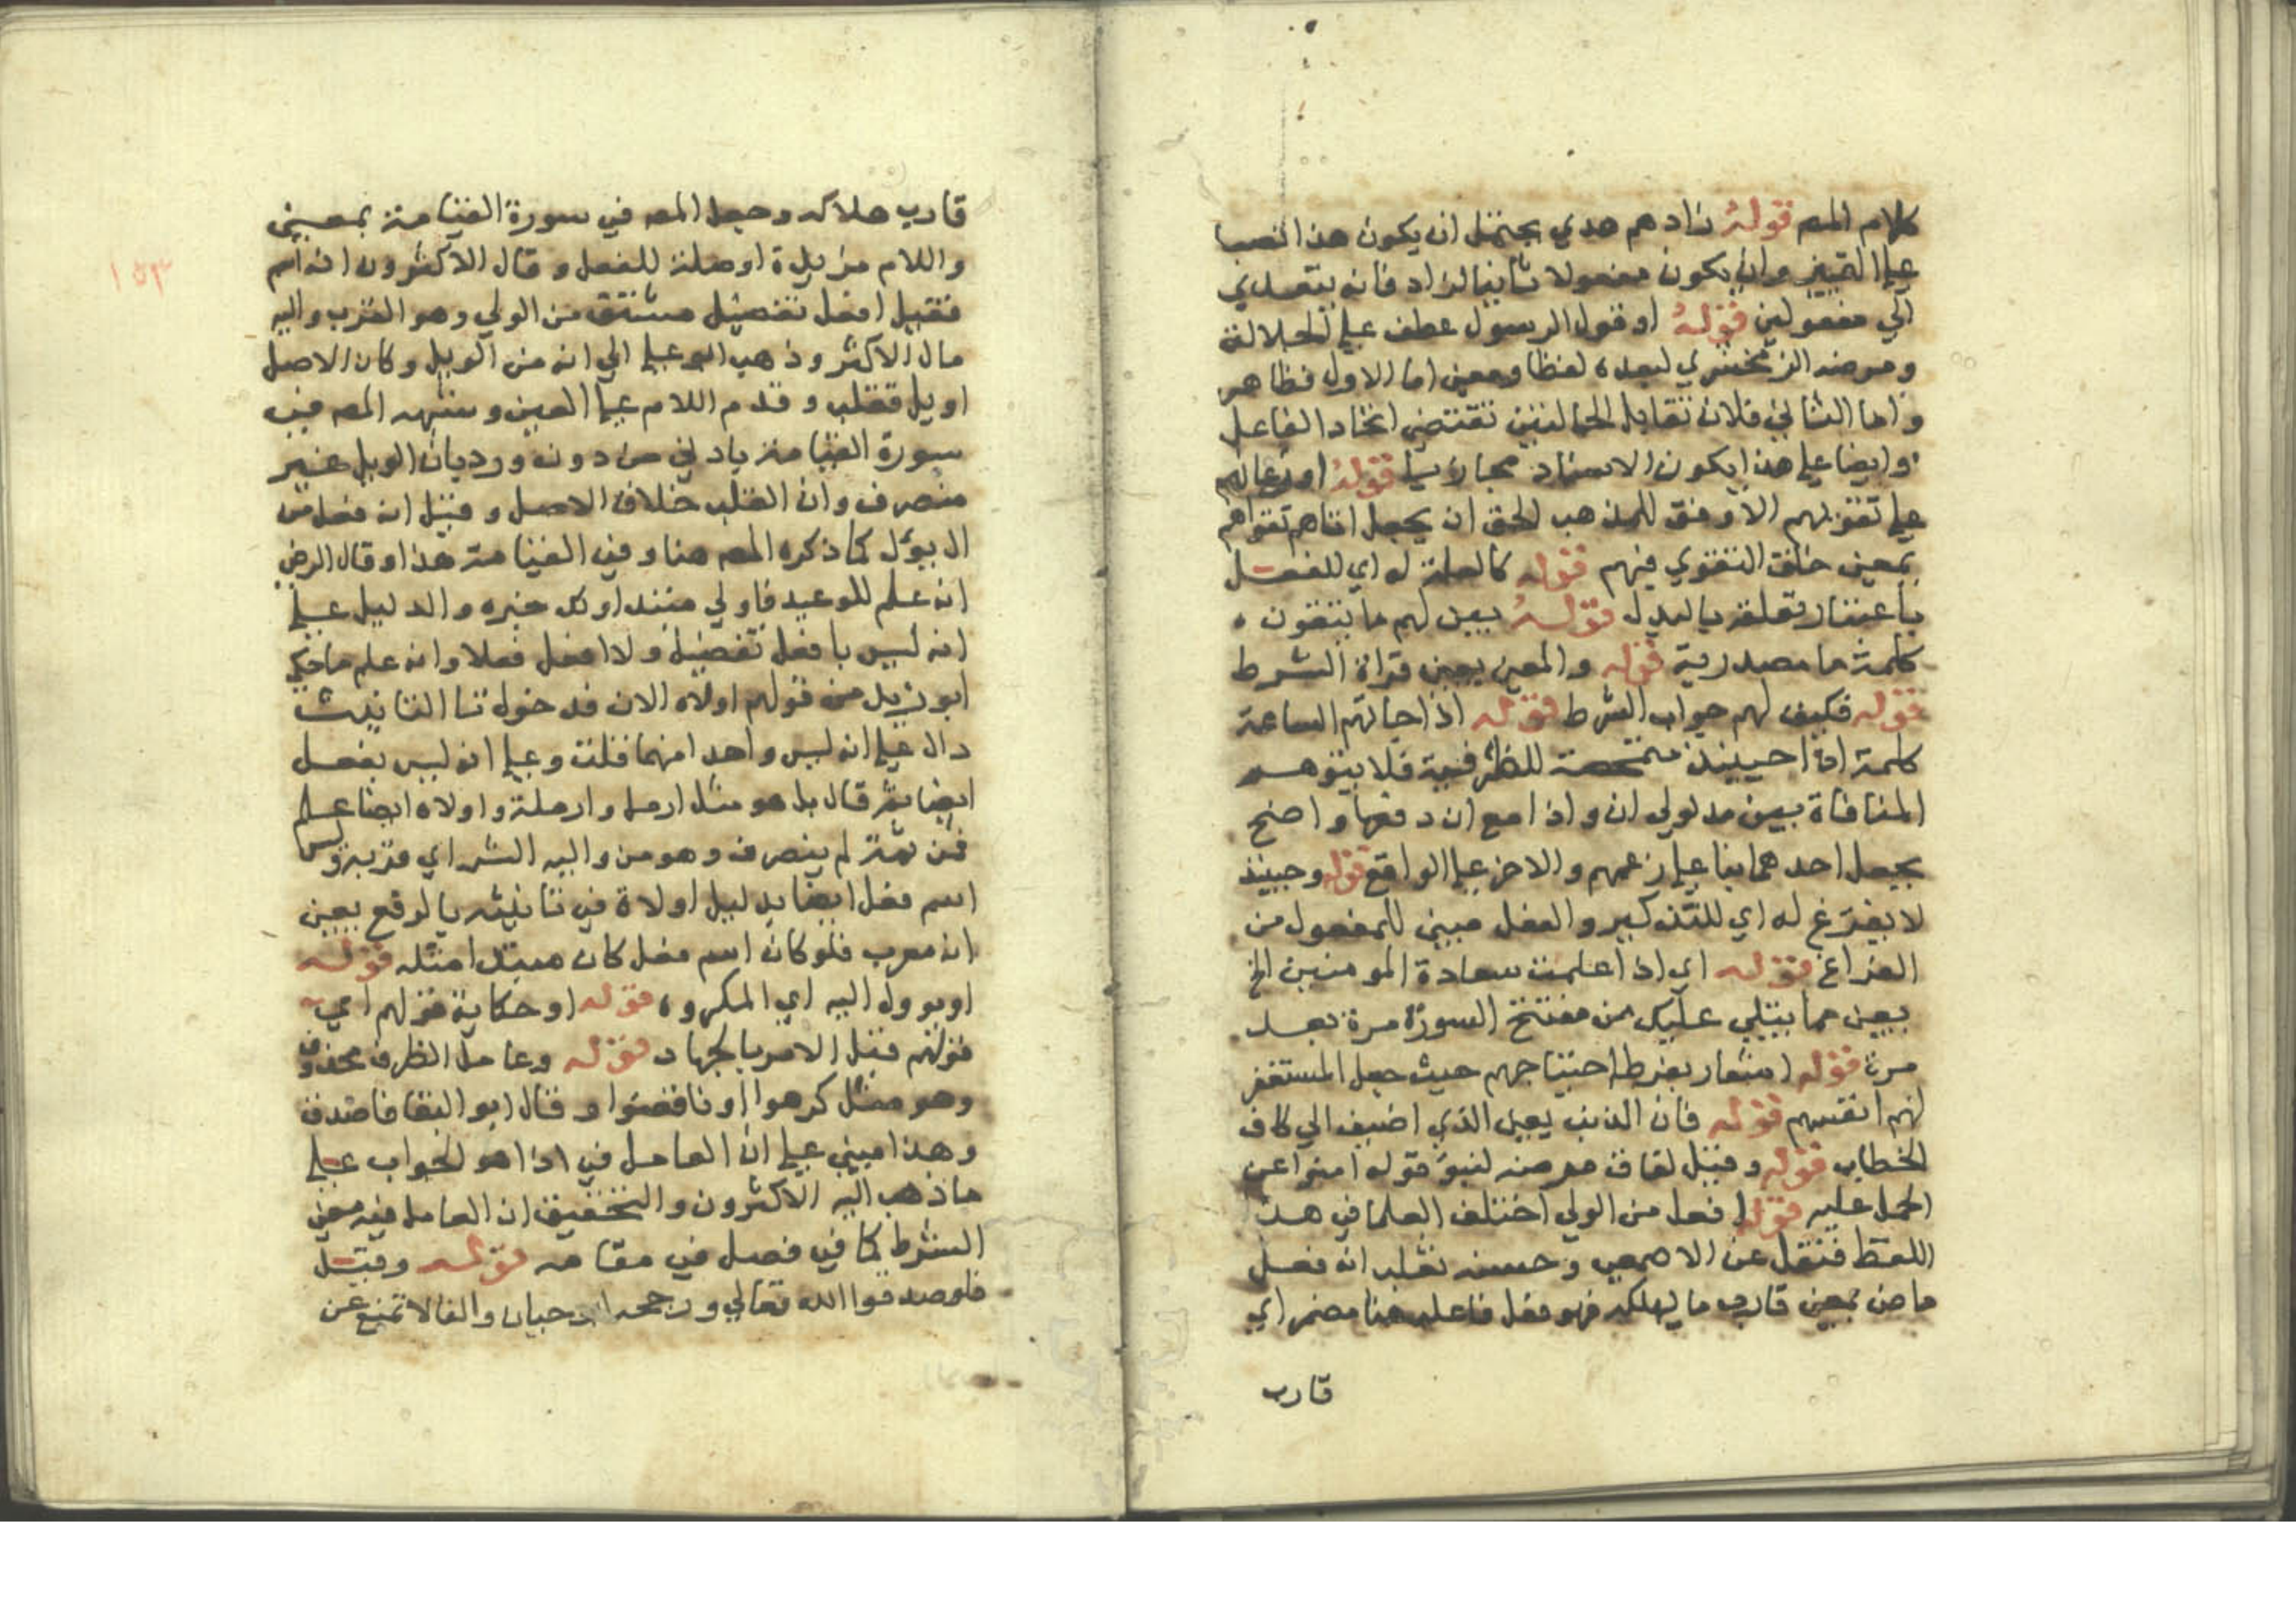 كلام المص قوله زادهم هدي يحتمل ان يكون هذا انتصبا
علي التمييز وان يكون مفعولا ثانيا لزاد فانه يتعدي
الي مفعولين قوله او قول الرسول عطف علي الجلالة
ومرضه الزمخشري لبعده لفظا ومعني اما الاول فظاهر
واما الثاني فلان تقابل الحالتين تقتضي اتحاد الفاعل
وايضا علي هذا يكون الاسناد مجازيا قوله او اعانهم
علي تقويهم الاوفق للمذهب الحق ان يجعل اتاهم تقواهم
بمعني خلق التقوي فيهم قوله كالعلة له اي للفعل
باعتبار تعلقه بالبدل قوله بين لهم ما يتقون
كلمة ما مصدرية قوله والمعني يعني قراة الشرط
قوله فكيف لهم جواب الشرط قوله اذا جاتهم الساعة
كلمة اذا حينيذ متمحضة للظرفية فلا يتوهم
المنافاة بين مدلولي ان واذا مع ان دفعها واضح
بجعل احدهما بنا علي زعمهم والاخر علي الواقع قوله وحينيذ
لا يفرغ له اي للتذكير والفعل مبني للمفعول من
الفراغ قوله اي اذا علمت سعادة المومنين الخ
يعني مما يتلي عليك من مفتتح السورة مرة بعد
مرة قوله اشعار بفرط احتياجهم حيث جعل المستغفر
لهم انفسهم قوله فان الذنب يعني الذي اضيف الي كاف
الخطاب قوله وقيل لقاف مرضه لنبو قوله امنوا عن
الحمل عليه قوله افعل من الولي اختلف العلما في هذا
اللفظ فنقل عن الاصمعي وحسنه ثعلب انه فعل
ماض بمعني قارب ما يهلكه فهو فعل فاعله هنا مضمر اي
قارب
١٥٣
قارب هلاكه وجعل المص في سورة القيامة بمعني
واللام مزيدة او صلة للفعل وقال الاكثرون انه اسم
فقيل افعل تفضيل مشتق من الولي وهو القرب واليه
مال الاكثر وذهب ابو علي الي انه من الويل وكان الاصل
اويل فقلب وقدم اللام علي العين وسيهه المص في
سورة القيامة بادني من دونه ورد بان الويل غير
منصرف وان القلب خلاف الاصل وقيل انه فعل من
ال يؤل كما ذكره المص هنا وفي القيامة هذا وقال الرضي
انه علم للوعيد فاولي مبتدا ولك خبره والدليل علي
انه ليس بافعل تفضيل ولا افعل فعلا وانه علم ما حكي
ابو زيد من قولهم اولاه الان فدخول تا التانيث
دال علي انه ليس واحدا منهما قلت وعلي انه ليس بفعل
ايضا ثم قال بل هو مثل ارمل وارملة واولاه ايضا علم
فمن ثمة لم ينصرف وهو من واليه الشر اي قربه وليس
اسم فعل ايضا بدليل اولاة في تانيثه بالرفع يعني
انه معرب فلو كان اسم فعل كان مبتدا مثله قوله
او يوول اليه اي المكروه قوله او حكاية قولهم اي
قولهم قبل الامر بالجهاد قوله وعامل الظرف محذوف
وهو مثل كرهوا او نافقوا وقال ابو البقا فاصدق
وهذا مبني علي ان العامل في اذا هو الجواب علي
ما ذهب اليه الاكثرون والتحقيق ان العامل فيه معني
الشرط كما في فصل في مقامه قوله وقيل
فلو صدقوا الله تعالي ورجحه ابو حيان والفا لا تمنع عن